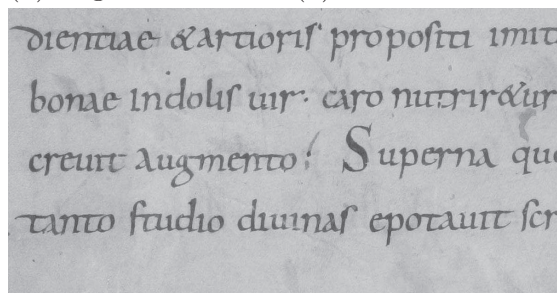 dientiae & artioris propositi imit
bonae indolis uir· caro nutrir&ur
creuit augmento: Superna que
tanto studio diuinas epotauit scr